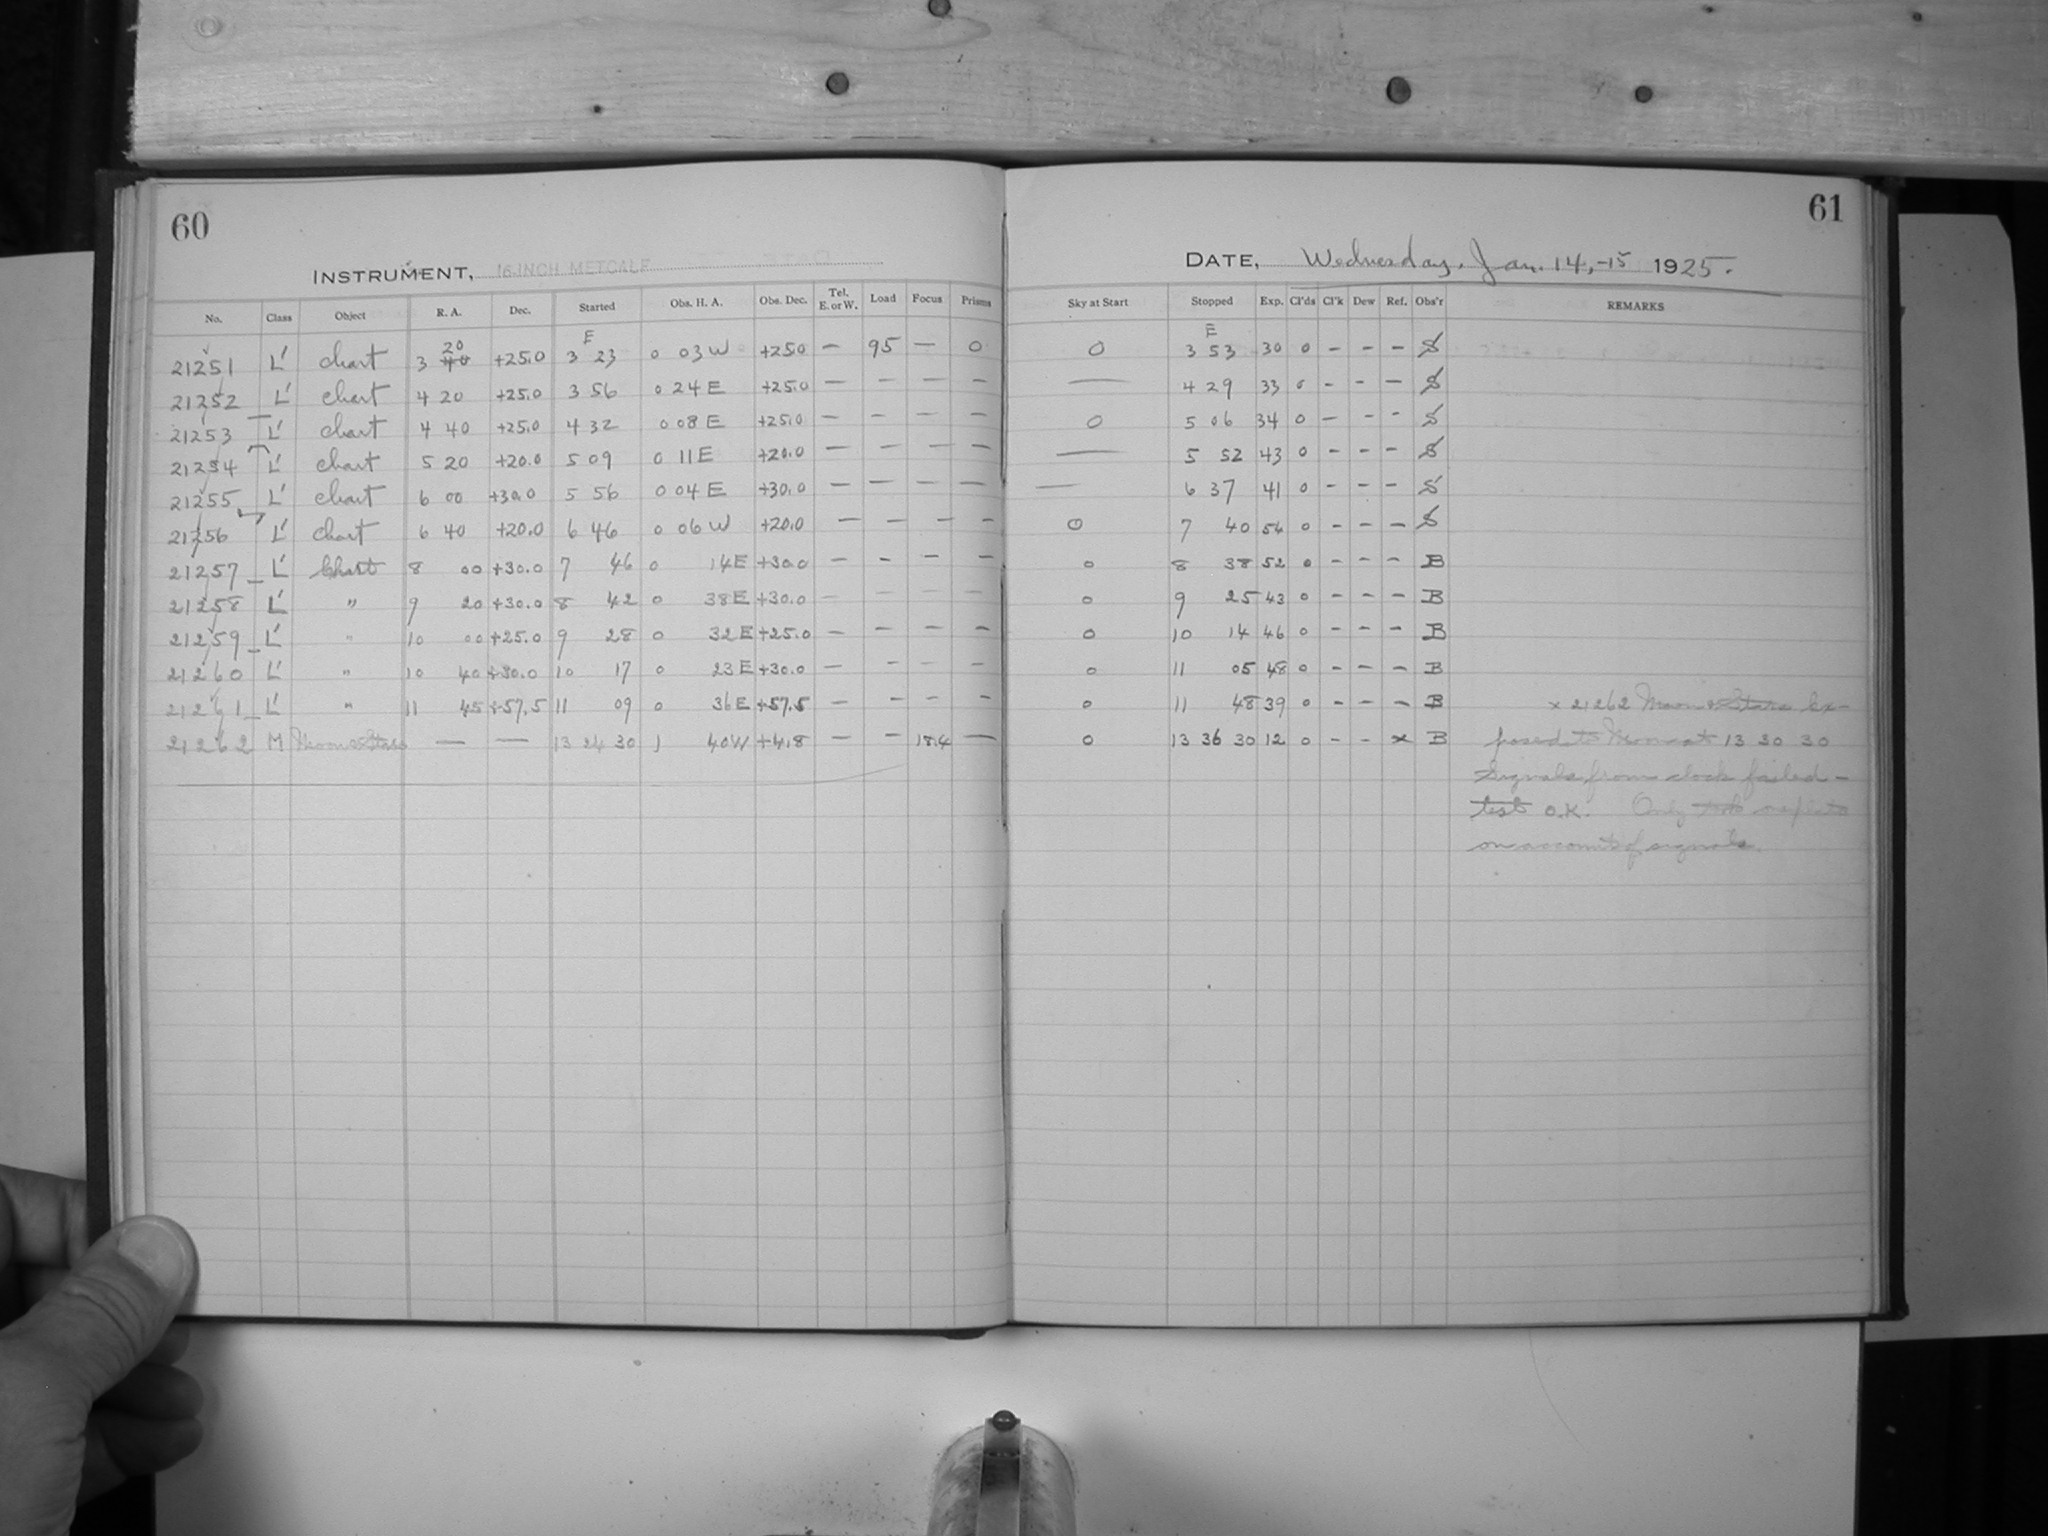 60
61
INSTRUMENT, 16-INCH METCALF
DATE, Wednesday, Jan. 14,-15 1925.
No. Class Object R. A. Dec. Started Obs. H. A. Obs. Dec. Tel. E. or W. Load Focus Prisms Sky at Start Stopped Exp. Cl'ds Cl'k Dew Ref. Obs'r REMARKS
20 E E
21251 L' chart 3 40 +25.0 3 23 0 03 W +25.0 — 95 — 0 0 3 53 30 0 - - - S
21252 L' chart 4 20 +25.0 3 56 0 24 E +25.0 — — — — — 4 29 33 0 - - - S
21253 L' chart 4 40 +25.0 4 32 0 08 E +25.0 — — — — 0 5 06 34 0 - - - S
21254 L' chart 5 20 +20.0 5 09 0 11 E +20.0 — — — — — 5 52 43 0 - - - S
21255 L' chart 6 00 +30.0 5 56 0 04 E +30.0 — — — — — 6 37 41 0 - - - S
21256 L' Chart 6 40 +20.0 6 46 0 06 W +20.0 — — — — 0 7 40 54 0 - - - S
21257 L' Chart 8 00 +30.0 7 46 0 14 E +30.0 — — — — 0 8 38 52 0 - - - B
21258 L' " 9 20 +30.0 8 42 0 38 E +30.0 — — — — 0 9 25 43 0 - - - B
21259 L' " 10 00 +25.0 9 28 0 32 E +25.0 — — — — 0 10 14 46 0 - - - B
21260 L' " 10 40 +30.0 10 17 0 23 E +30.0 — — — — 0 11 05 48 0 - - - B
21261 L' " 11 45 +57.5 11 09 0 36 E +57.5 — — — — 0 11 48 39 0 - - - B x 21262 Moon & Stars Ex-
21262 M Moon & Stars — — 13 24 30 1 40 W +4.8 — — 18.4 — 0 13 36 30 12 0 - - x B posed to Moon at 13 30 30
Signals from clock failed -
test O.K. Only took one plate
on account of signals.